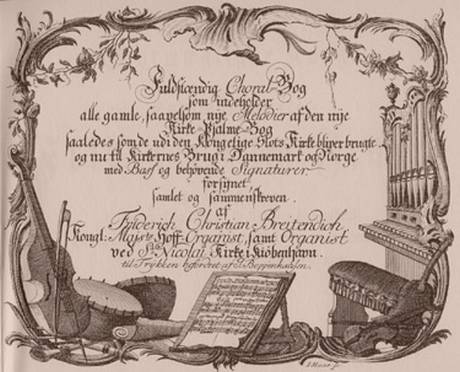 Fuldstændig Choral-Bog
som indeholder
alle gamle, saavelsom nye Melodier af den nye
Kirke-Psalme-Bog
saaledes som de udi den Kongelige Slots Kirke bliver brugte,
og nu til Kirkernes Brug i Dannemark og Norge
med Bass og behövende Signaturer
forsynet,
samlet og sammenskreven
af
Friderich Christian Breitendich
Kongl: Majsts Hoff-Organist, samt Organist
ved Sto Nicolai Kirke i Kiöbenhavn.
til Trykken befordret af